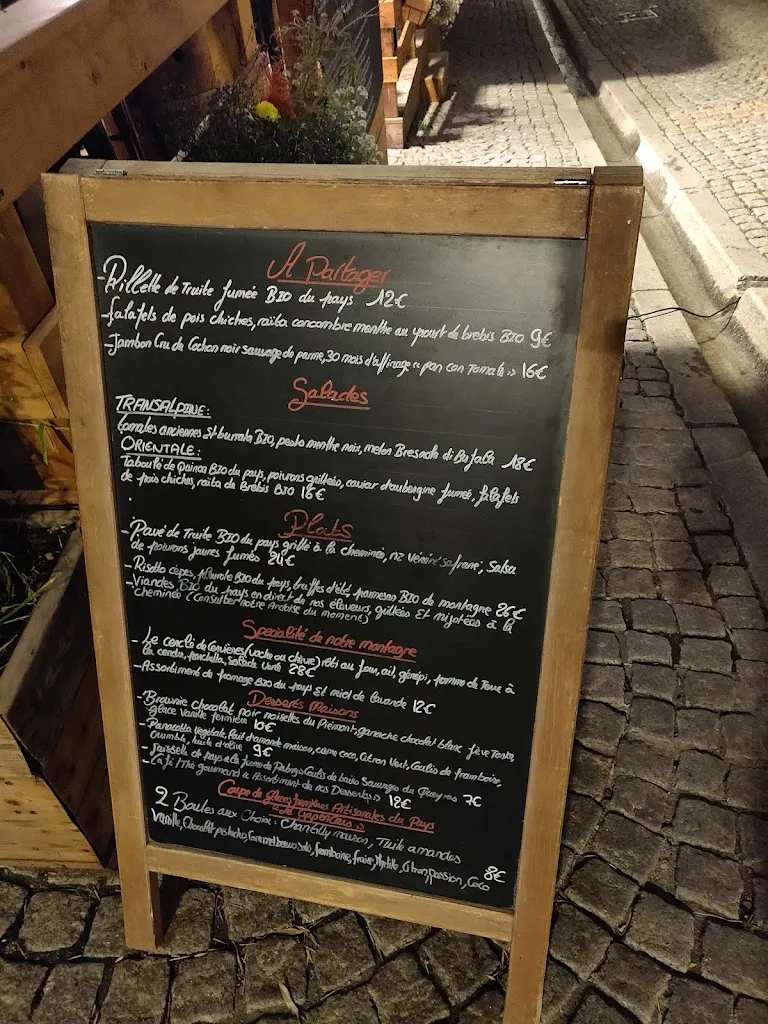 A Partager
-Rillette de Truite fumée BIO du pays 12€
-falafels de pois chiches, raïta concombre menthe au yaourt de brebis BIO 9€
-Jambon Cru de Cochon noir sauvage de parme, 30 mois d'affinage « pan con Tomate » 16€
Salades
TRANSALPINE:
tomates anciennes Et burrata BIO, pesto menthe noix, melon Bresaola di Bufala 18€
ORIENTALE:
Taboulé de Quinoa BIO du pays, poivrons grillées, caviar d'aubergine fumée, falafels
de pois chiches, raïta de Brebis BIO 16€
Plats
-Pavé de Truite BIO du pays grillé à la cheminée, riz Vénéré safrané, Salsa
de poivrons jaunes fumés 24€
-Risotto cèpes, pleurote BIO du pays, truffes d'été, parmesan BIO de montagne 26€
-Viandes BIO du pays en direct de nos éleveurs, grillées Et mijotées à la
cheminée (Consulter notre Ardoise du moment)
Spécialité de notre montagne
- Le cerclé de Cervières (vache ou chèvre) rôti au four, ail, génépi, pomme de Terre à
la cendre, porchetta, salade verte 28€
-Assortiment de fromage BIO du pays Et miel de lavande 12€
Desserts Maisons
-Brownie chocolat noir noisettes du Piémont, ganache chocolat blanc fève Tonka,
glace vanille fermière 10€
-Panacotta Végétale, lait d'amande maison, coco, Citron Vert, Coulis de framboise,
Crumble, huile d'olive 9€
-faisselle de pays Coulis de baies Sauvages du Queyras 7€
-Café/Thé gourmand « Assortiment de nos Desserts » 12€
Coupe de glaces fermières Artisanales du Pays
2 Boules aux Choix: Chantilly maison, Tuile amandes
Vanille, Chocolat, pistache, Caramel beurre salé, framboise, fraise, Myrtille, Citron, passion, Coco 8€